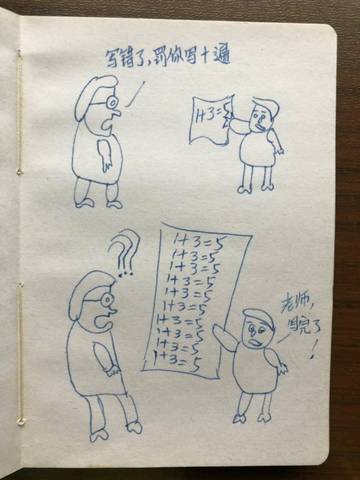 写错了,罚你写十遍
1+3=5
???
1+3=5
1+3=5
1+3=5
1+3=5
1+3=5
1+3=5
1+3=5
1+3=5
1+3=5
1+3=5
老师,
写完了
!